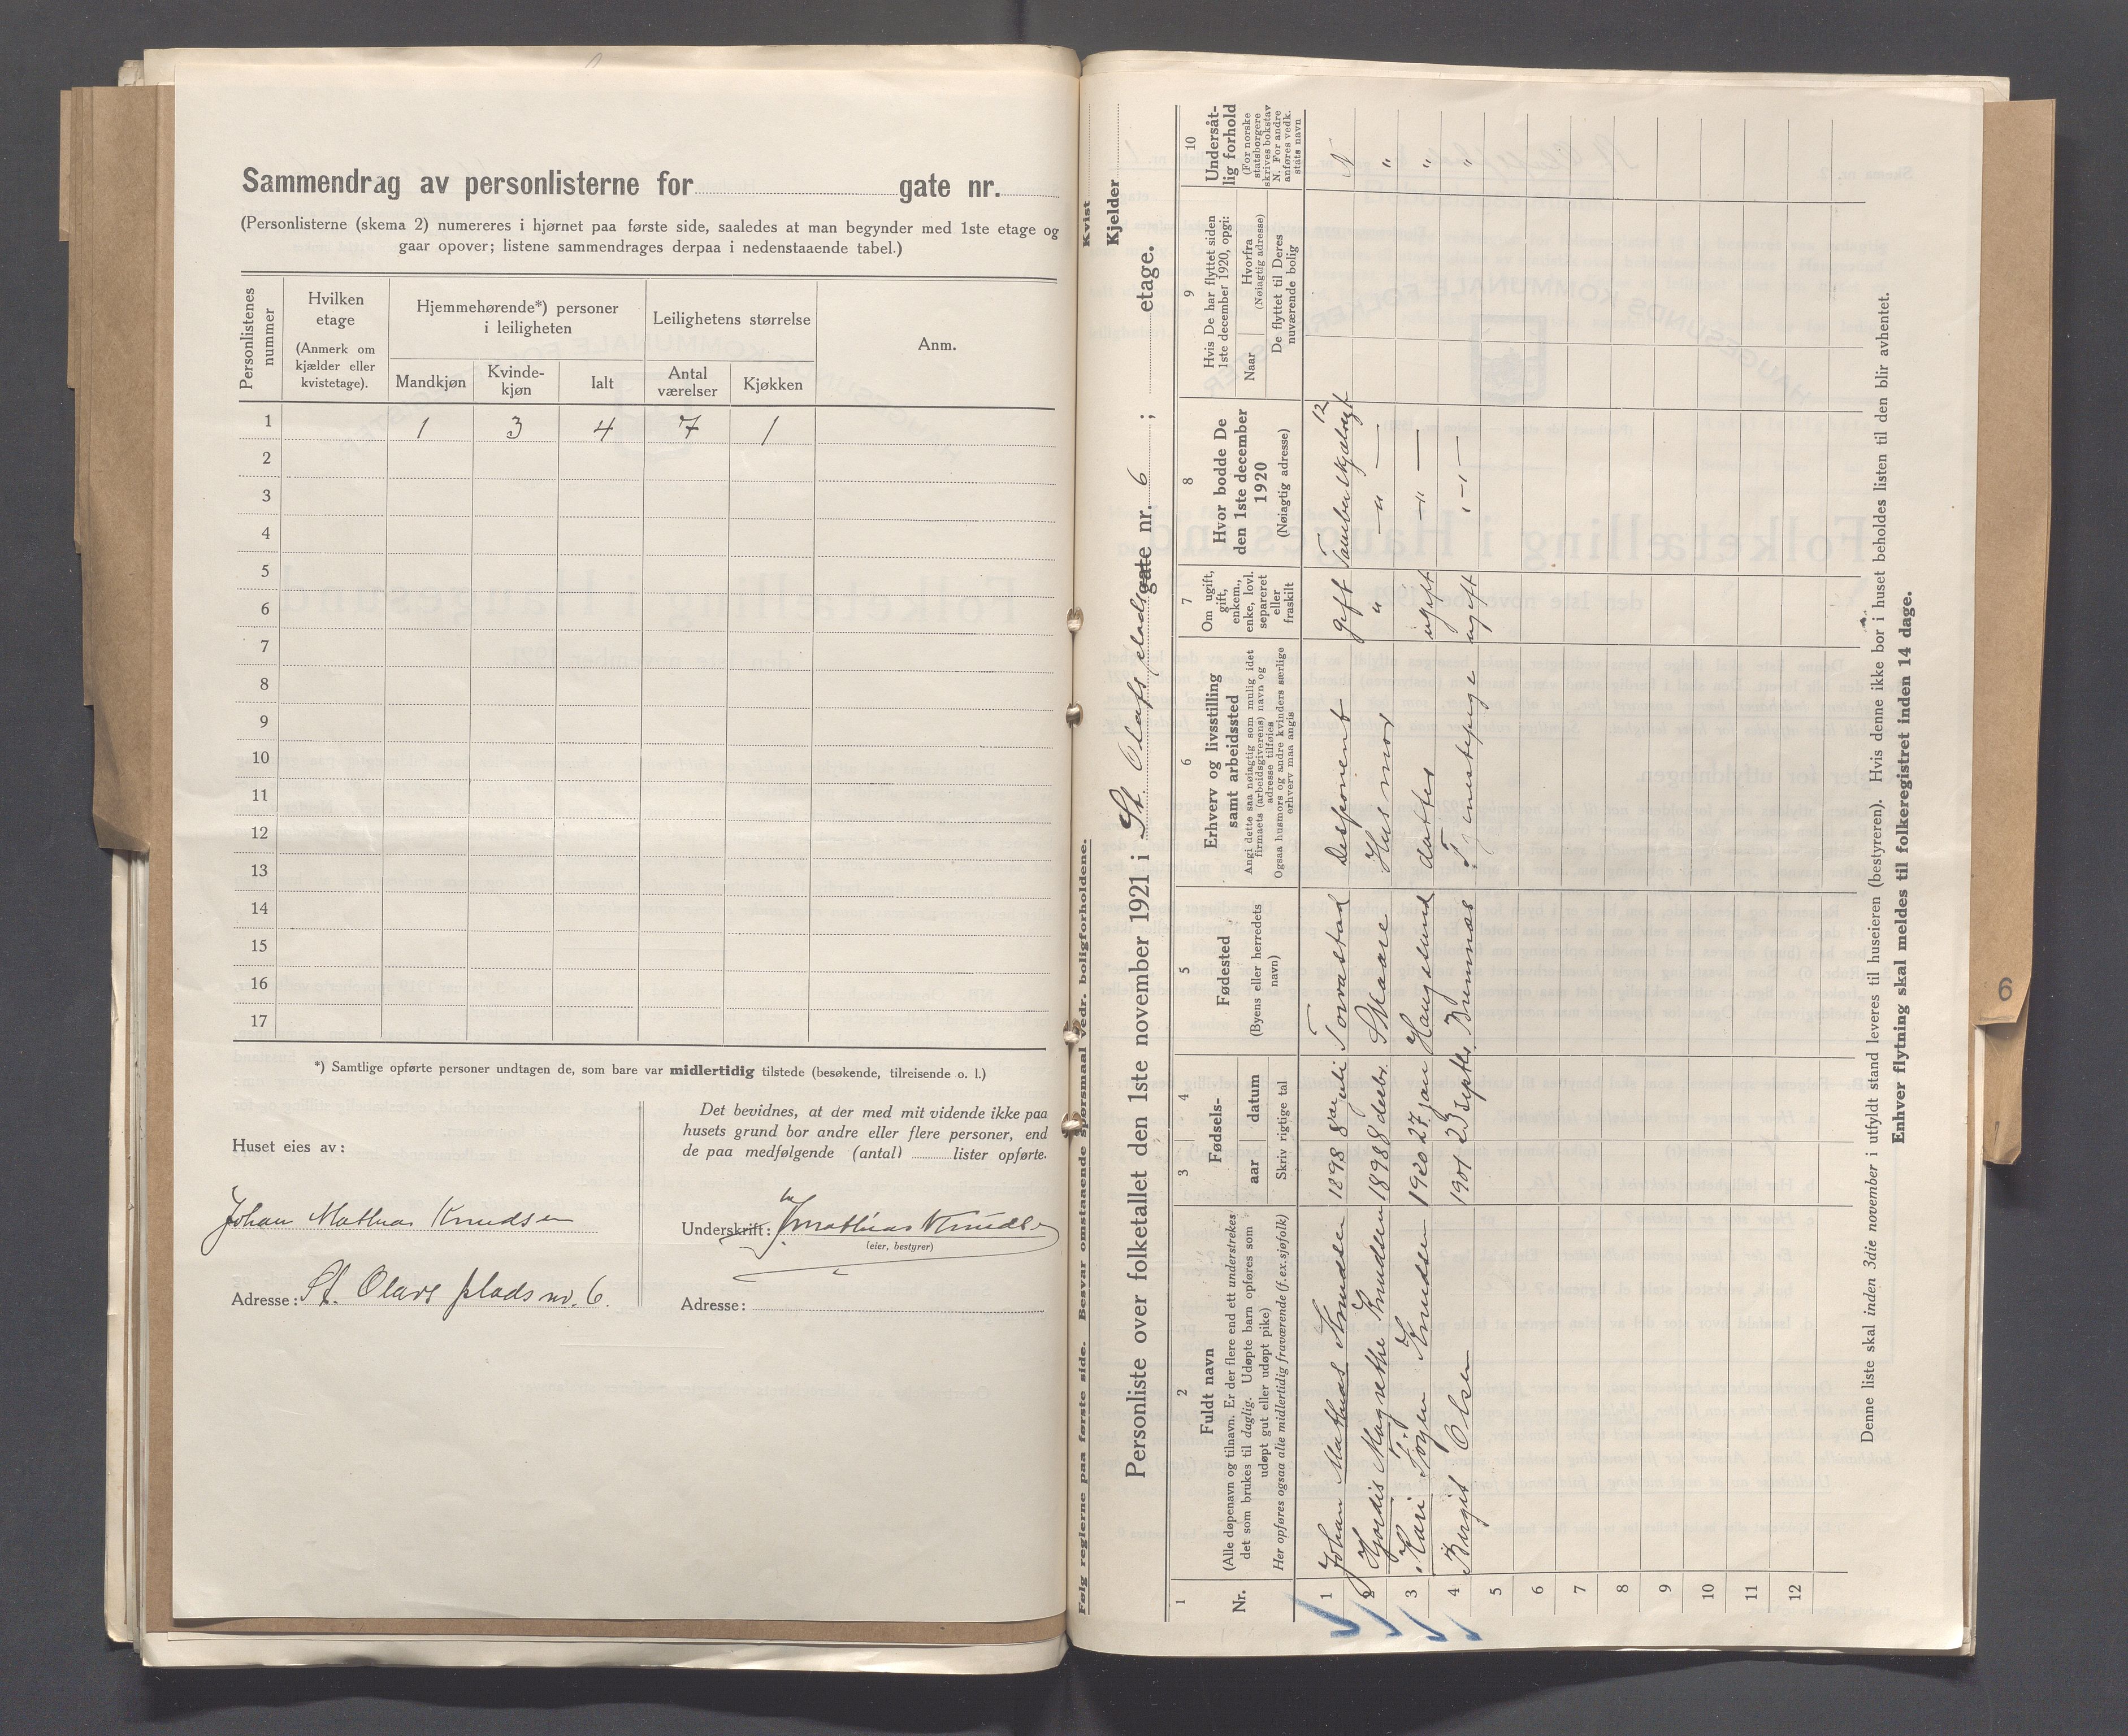 Sammendrag av personlisterne for gate nr.
(Personlisterne (skema 2) numereres i hjørnet paa første side, saaledes at man begynder med 1ste etage og
gaar opover; listene sammendrages derpaa i nedenstaaende tabel.)
Personlistenes nummer
Hvilken etage (Anmerk om kjælder eller kvistetage).
Hjemmehørende*) personer i leiligheten
Leilighetens størrelse
Anm.
Mandkjøn Kvinde-kjøn Ialt Antal værelser Kjøkken
1 1 3 4 7 1
2
3
4
5
6
7
8
9
10
11
12
13
14
15
16
17
*) Samtlige opførte personer undtagen de, som bare var midlertidig tilstede (besøkende, tilreisende o. l.)
Huset eies av:
Johan Mathias Knudsen
Adresse: St. Olavs plads nr. 6.
Det bevidnes, at der med mit vidende ikke paa
husets grund bor andre eller flere personer, end
de paa medfølgende (antal) lister opførte.
Underskrift: Mathias Knudsen
(eier, bestyrer)
Adresse:
Følg reglerne paa første side. Besvar omstaaende spørsmaal vedr. boligforholdene.
Kvist
Kjelder
Personliste over folketallet den 1ste november 1921 i St. Olafs plads gate nr. 6 ; etage.
1 2 3 4 5 6 7 8 9 10
Nr.
Fuldt navn
(Alle døpenavn og tilnavn. Er der flere end ett understrekes
det som brukes til daglig. Udøpte barn opføres som
udøpt gut eller udøpt pike)
Her opføres ogsaa alle midlertidig fraværende (f.ex.sjøfolk)
Fødsels-
aar datum
Skriv rigtige tal
Fødested
(Byens eller herredets navn)
Erhverv og livsstilling
samt arbeidssted
Angi dette saa nøiagtig som mulig idet
firmaets (arbeidsgiverens) navn og
adresse tilføies
Ogsaa husmors og andre kvinders særlige
erhverv maa angis
Om ugift, gift, enkem., enke, lovl. separeret eller fraskilt
Hvor bodde De
den 1ste december
1920
(Nøiagtig adresse)
Hvis De har flyttet siden
1ste december 1920, opgi:
Naar
Hvorfra
(Nøiagtig adresse)
De flyttet til Deres
nuværende bolig
Undersåt-
lig forhold
(For norske
statsborgere
skrives bokstav
N. For andre
anføres vedk.
stats navn
1 Johan Mathias Knudsen 1898 8de juli Torvastad Desponent gift 12 N
2 Hjørdis Magrethe Knudsen 1898 8 decbr. Skaare Husmor " — " — "
3 Kari Knudsen 1920 27 jan Haugesund datter ugift — " — "
4 Bergit Olsen 1901 23 septbr. Bremnes Tjenestepige ugift — " — "
5
6
7
8
9
10
11
12
Denne liste skal inden 3die november i utfyldt stand leveres til huseieren (bestyreren). Hvis denne ikke bor i huset beholdes listen til den blir avhentet.
Enhver flytning skal meldes til folkeregistret inden 14 dage.
6